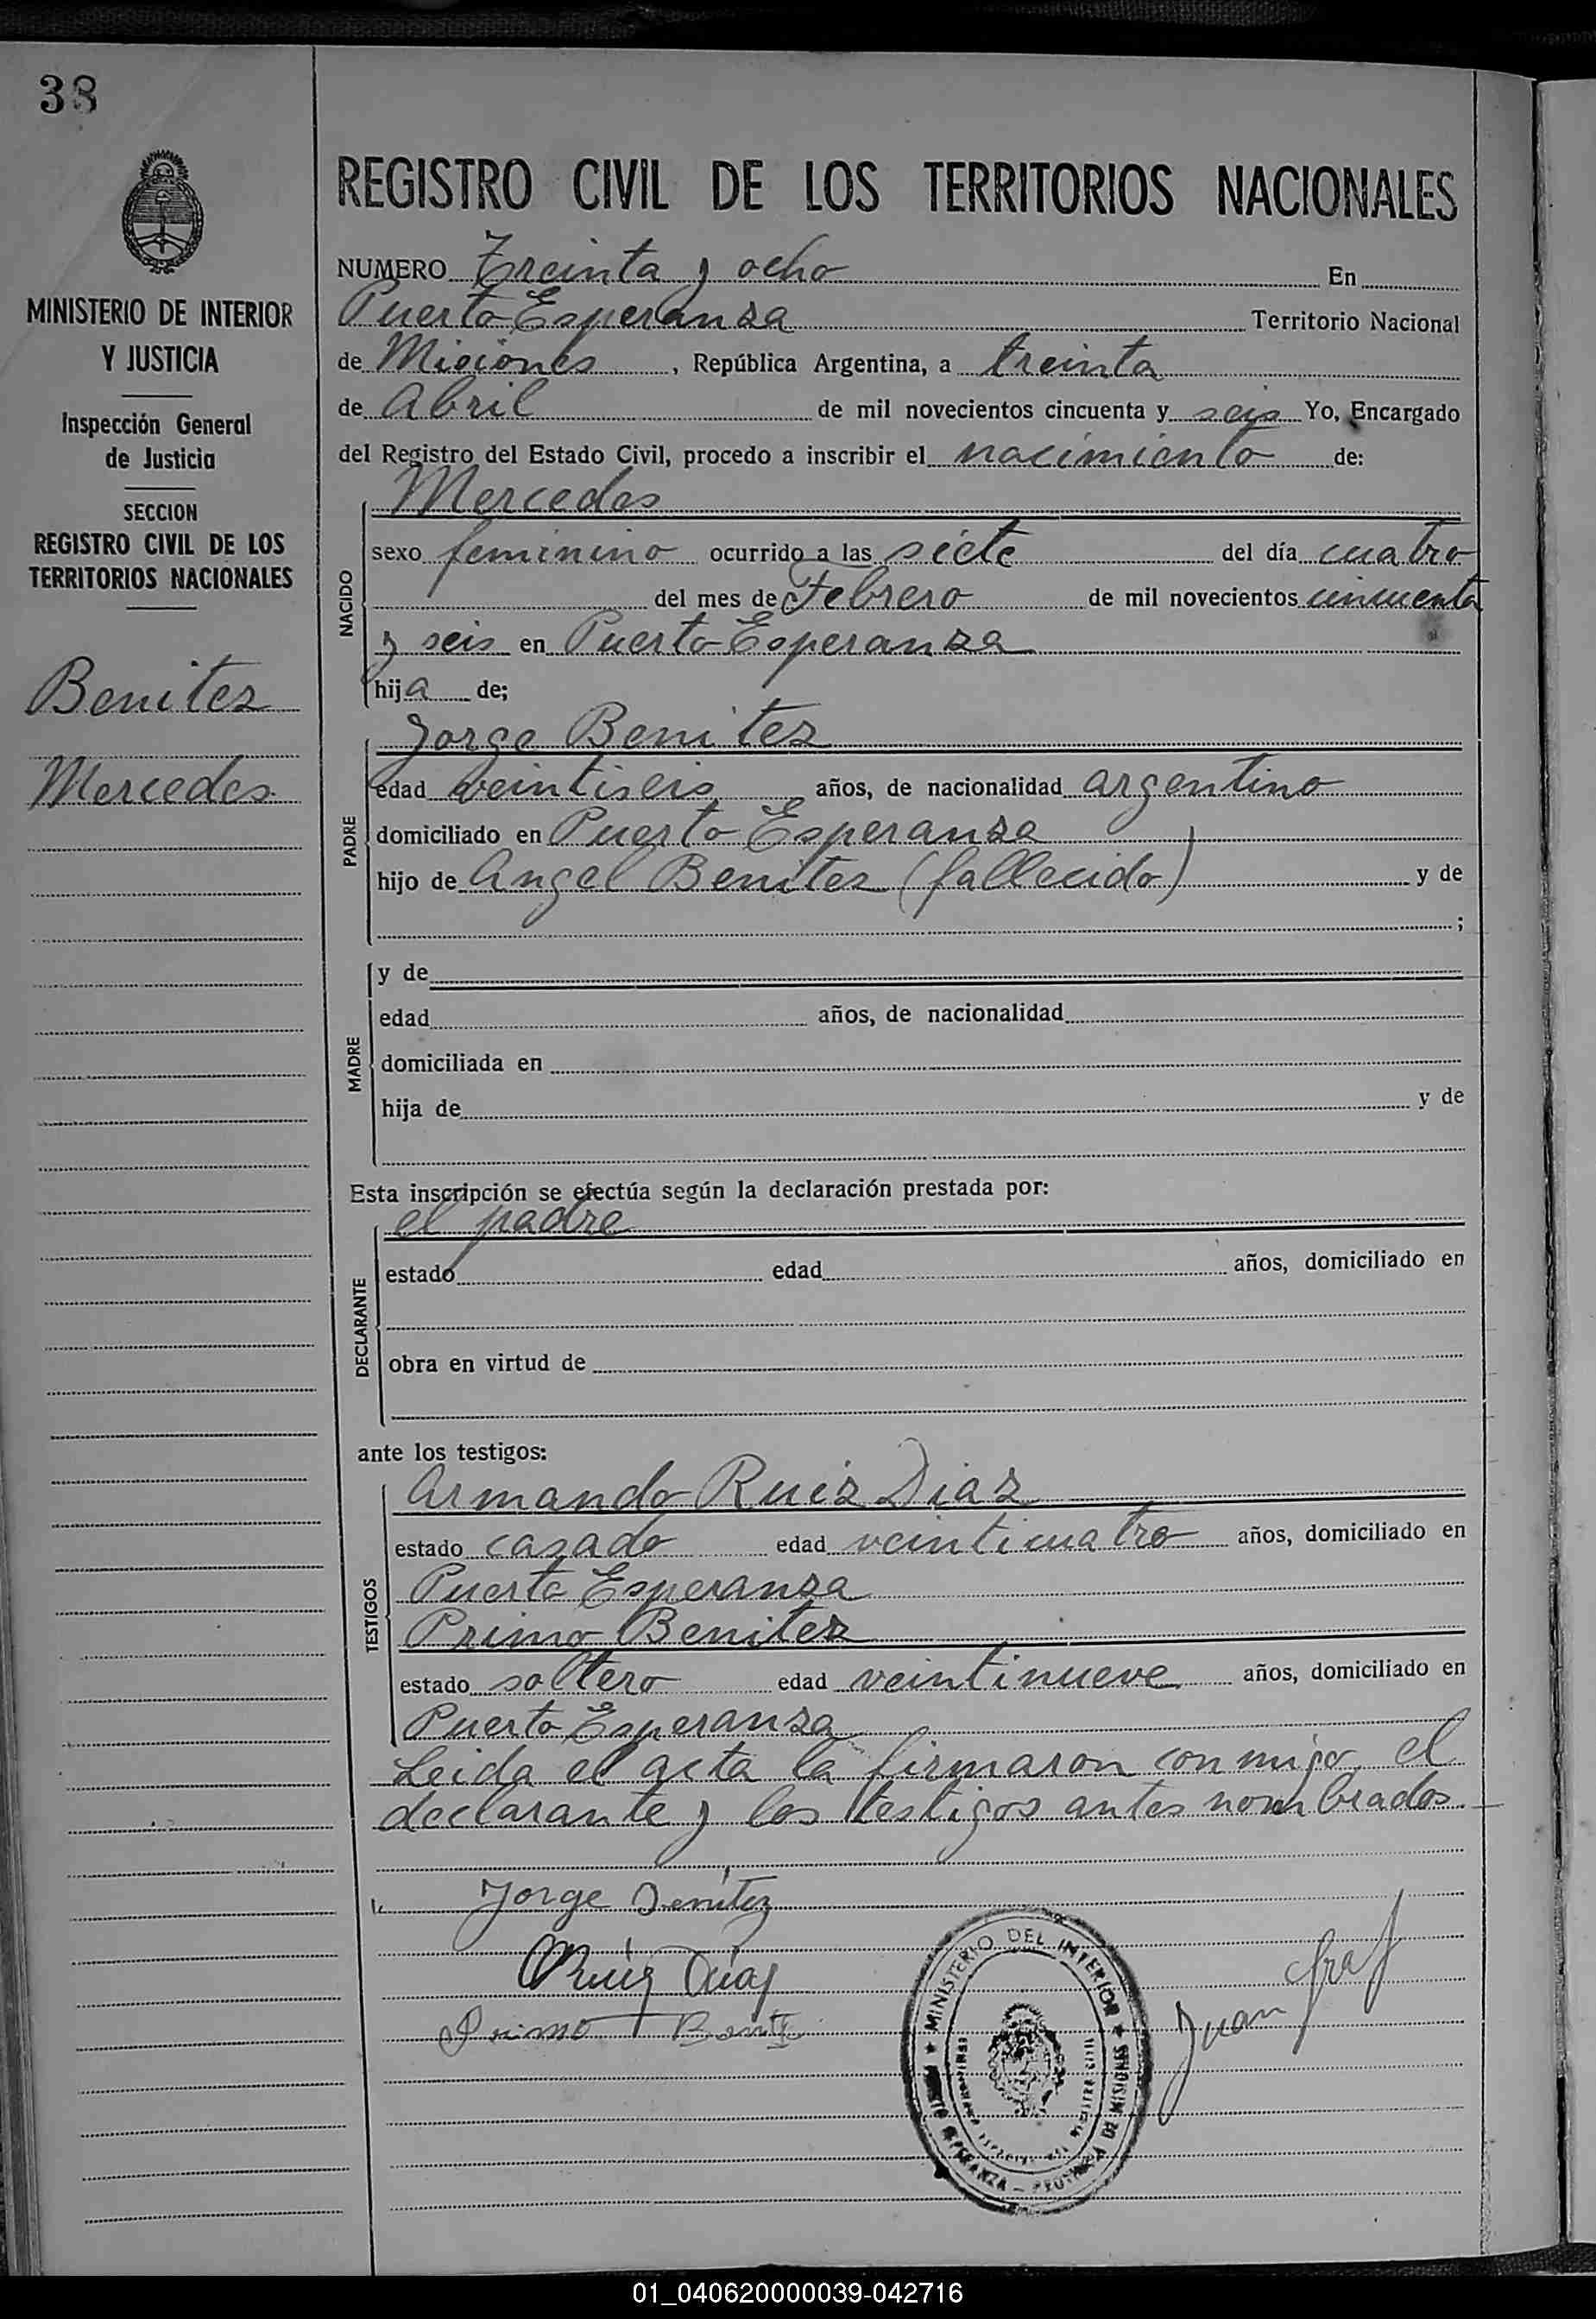 38
MINISTERIO DE INTERIOR
Y JUSTICIA
Inspección General
de Justicia
SECCION
REGISTRO CIVIL DE LOS
TERRITORIOS NACIONALES
Benitez
Mercedes
REGISTRO CIVIL DE LOS TERRITORIOS NACIONALES
NUMERO Treinta y ocho En
Puerto Esperanza Territorio Nacional
de Misiones, República Argentina, a treinta
de Abril de mil novecientos cincuenta y seis Yo, Encargado
del Registro del Estado Civil, procedo a inscribir el nacimiento de:
NACIDO
Mercedes
sexo femenino ocurrido a las siete del día cuatro
del mes de Febrero de mil novecientos cincuenta
y seis en Puerto Esperanza
hija de;
PADRE
Jorge Benitez
edad veintiseis años, de nacionalidad argentino
domiciliado en Puerto Esperanza
hijo de Angel Benitez (fallecido) y de
;
MADRE
y de
edad años, de nacionalidad
domiciliada en
hija de y de
Esta inscripción se efectúa según la declaración prestada por:
DECLARANTE
el padre
estado edad años, domiciliado en
obra en virtud de
ante los testigos:
TESTIGOS
Armando Ruiz Diaz
estado casado edad veinticuatro años, domiciliado en
Puerto Esperanza
Primo Benitez
estado soltero edad veintinueve años, domiciliado en
Puerto Esperanza
Leida el acta la firmaron conmigo, el
declarante y los testigos antes nombrados.
Jorge Benitez
Ruiz Diaz
Primo Benitez
Juan Graf
MINISTERIO DEL INTERIOR
PUERTO ESPERANZA - PROVINCIA DE MISIONES
01_040620000039-042716